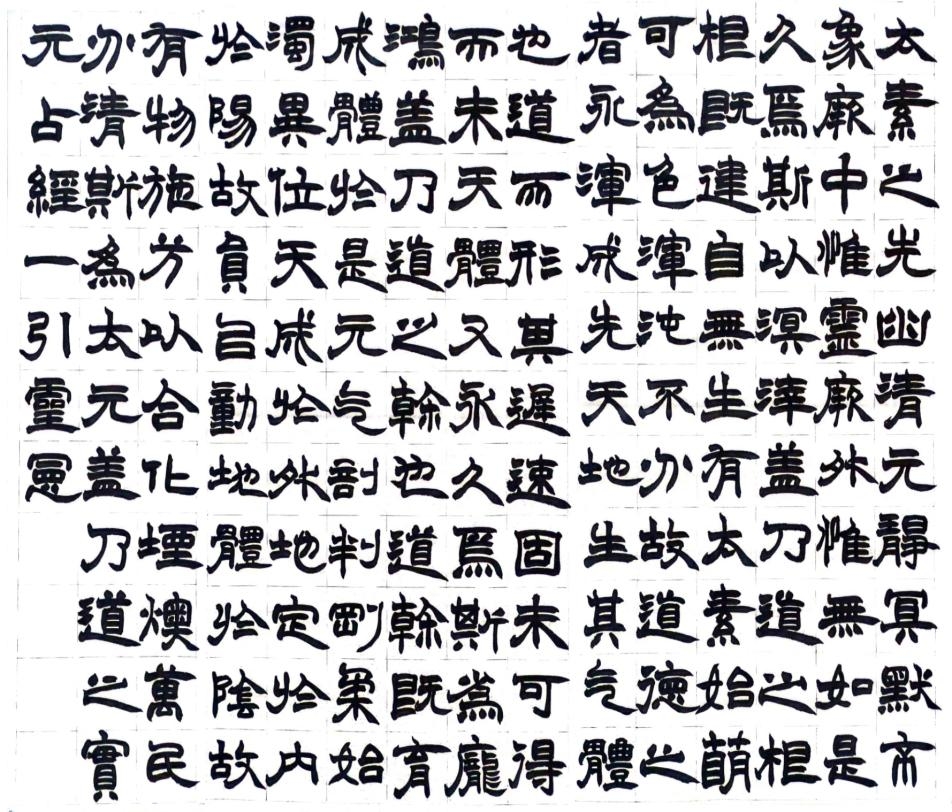 太素之先幽清元靜冥默不
象厥中惟靈厥外惟無如是
久焉斯以溟涬盖乃道之根
根既建自無生有太素始萌
可為色渾沌不分故道德之
者永渾成先天地生其气體
也道而形其遲速固未可得
而未天體又永久焉斯為龐
鴻盖乃道之幹也道幹既育
成體於是元气剖判剛柔始
濁異位天成於外地定於內
於陽故員㠯動地體於陰故
有物施方以合化堙燠萬民
分清斯為太元盖乃道之實
元占經一引靈憲